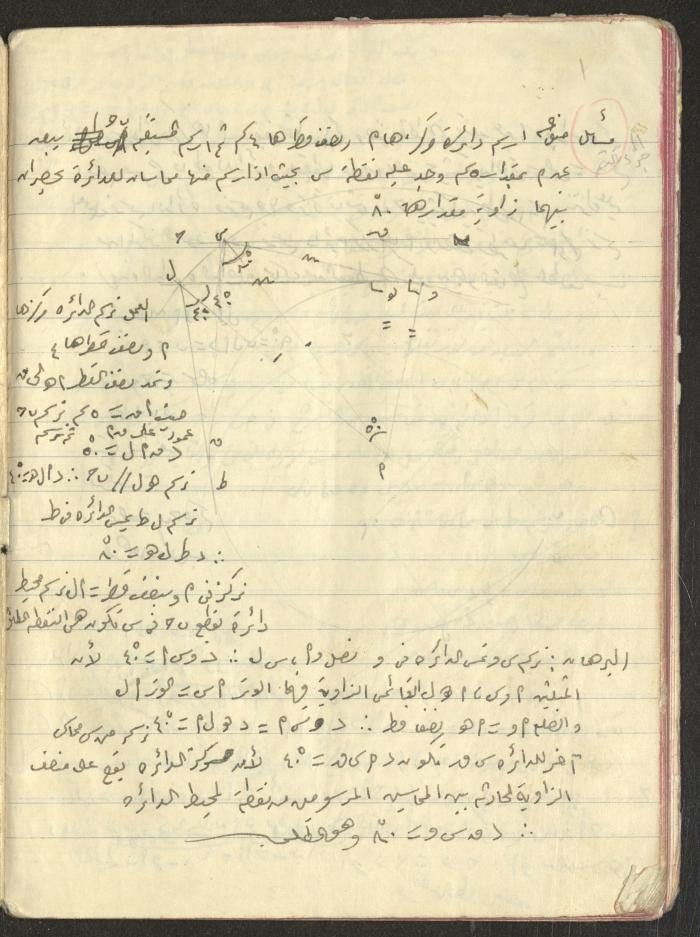 ١
مسائل متنوعة ارسم دائرة مركزها م ونصف قطرها ٤ سم ثم ارسم مستقيم يبعد
عن م بمقدار ٥ سم وجد عليه نقطة س بحيث اذا رسم منها مماسان للدائرة يحصران
بينهما زاوية مقدارها ٨٠°
ن
س
ل
٤٠°
٤٠°
٥٠°
م
ن
ط
العمل نرسم الدائرة مركزها
م ونصف قطرها ٤
ونمد نصف القطر م هـ الى ن
حيث م ن = ٥ سم نرسم ن ح
عمود على ن م ثم نرسم
د ن م ل = ٥٠°
نرسم هـ ل // ن ح ∴ د م ل هـ = ٤٠°
نرسم ل ط يمس الدائرة في ط
∴ د ط ل هـ = ٨٠°
نركز في م وبنصف قطر = م ل نرسم محيط
دائرة تقطع ن ح في س تكون هي النقطة
البرهان : نرسم س و تمس الدائرة في و ونصل و م ، س ل ∴ د و س م = ٤٠° لأن
المثلثين م و س ، م هـ ل القائمي الزاوية فيهما الوتر م س = الوتر م ل
والضلع م و = م هـ نصف قطر ∴ د و س م = د هـ ل م = ٤٠° نرسم من س مماس
آخر للدائرة س ف تكون د م س ف = ٤٠° لأن مركز الدائرة يقع على منصف
الزاوية الحادثة بين المماسين المرسومين من نقطة لمحيط الدائرة
∴ د ف س و = ٨٠° وهو المطلوب